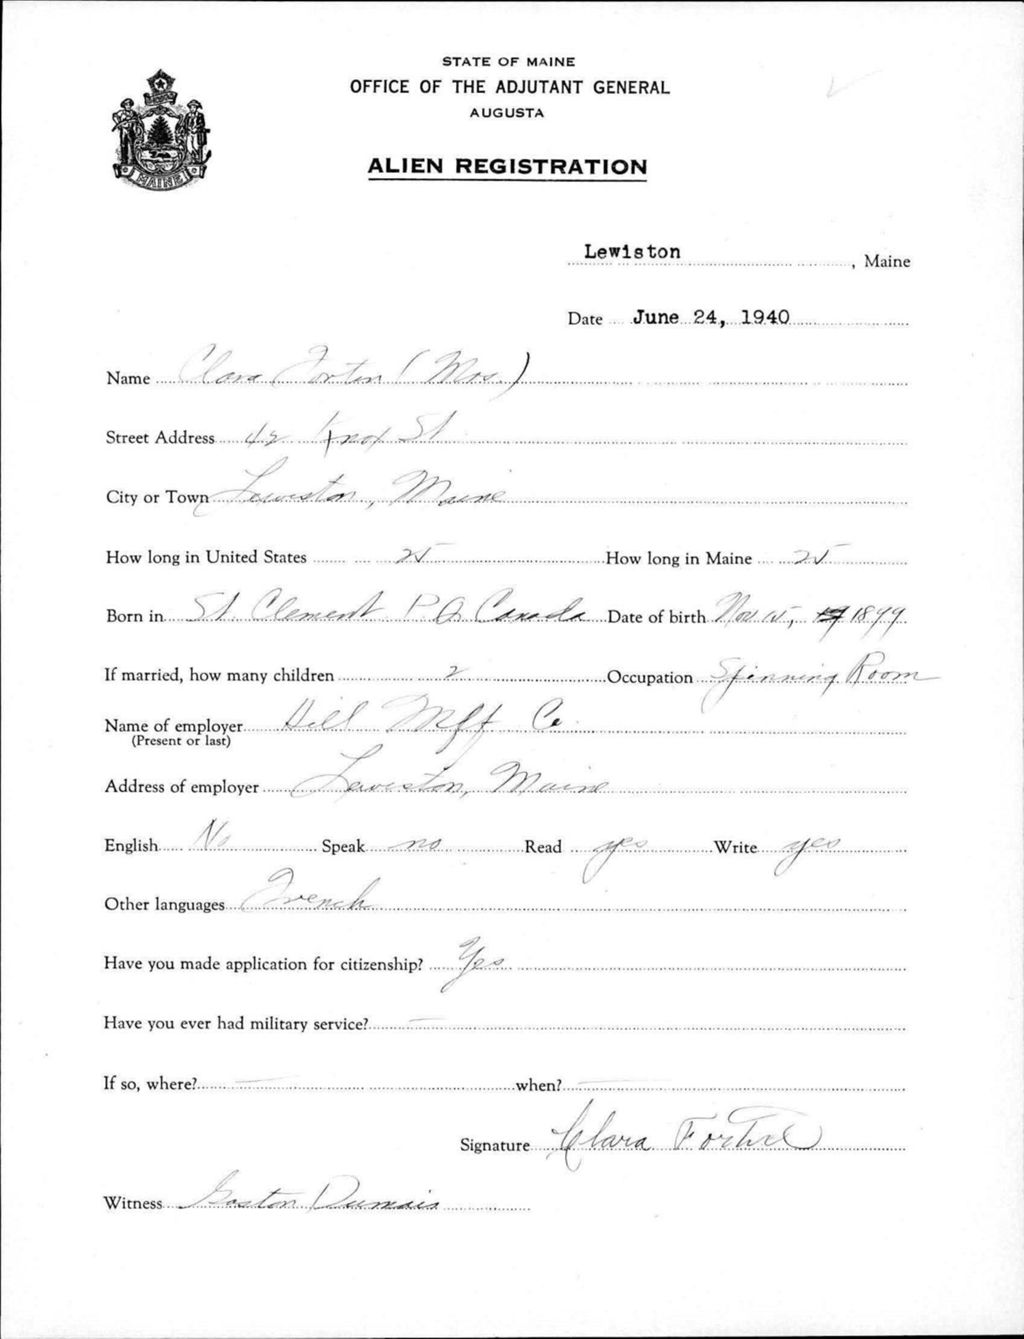 STATE OF MAINE
OFFICE OF THE ADJUTANT GENERAL
AUGUSTA
ALIEN REGISTRATION
MAINE
Lewiston, Maine
Date June 24, 1940
Name Clara Fortin (Mrs.)
Street Address 42 Knox St
City or Town Lewiston, Maine
How long in United States 25 How long in Maine 25
Born in St. Clement P.Q. Canada Date of birth Nov 15, 1899
If married, how many children 2 Occupation Spinning Room
Name of employer Hill Mfg Co.
(Present or last)
Address of employer Lewiston, Maine
English No Speak no Read yes Write yes
Other languages French
Have you made application for citizenship? Yes
Have you ever had military service? —
If so, where? — when? —
Signature Clara
Witness Gaston Dumais